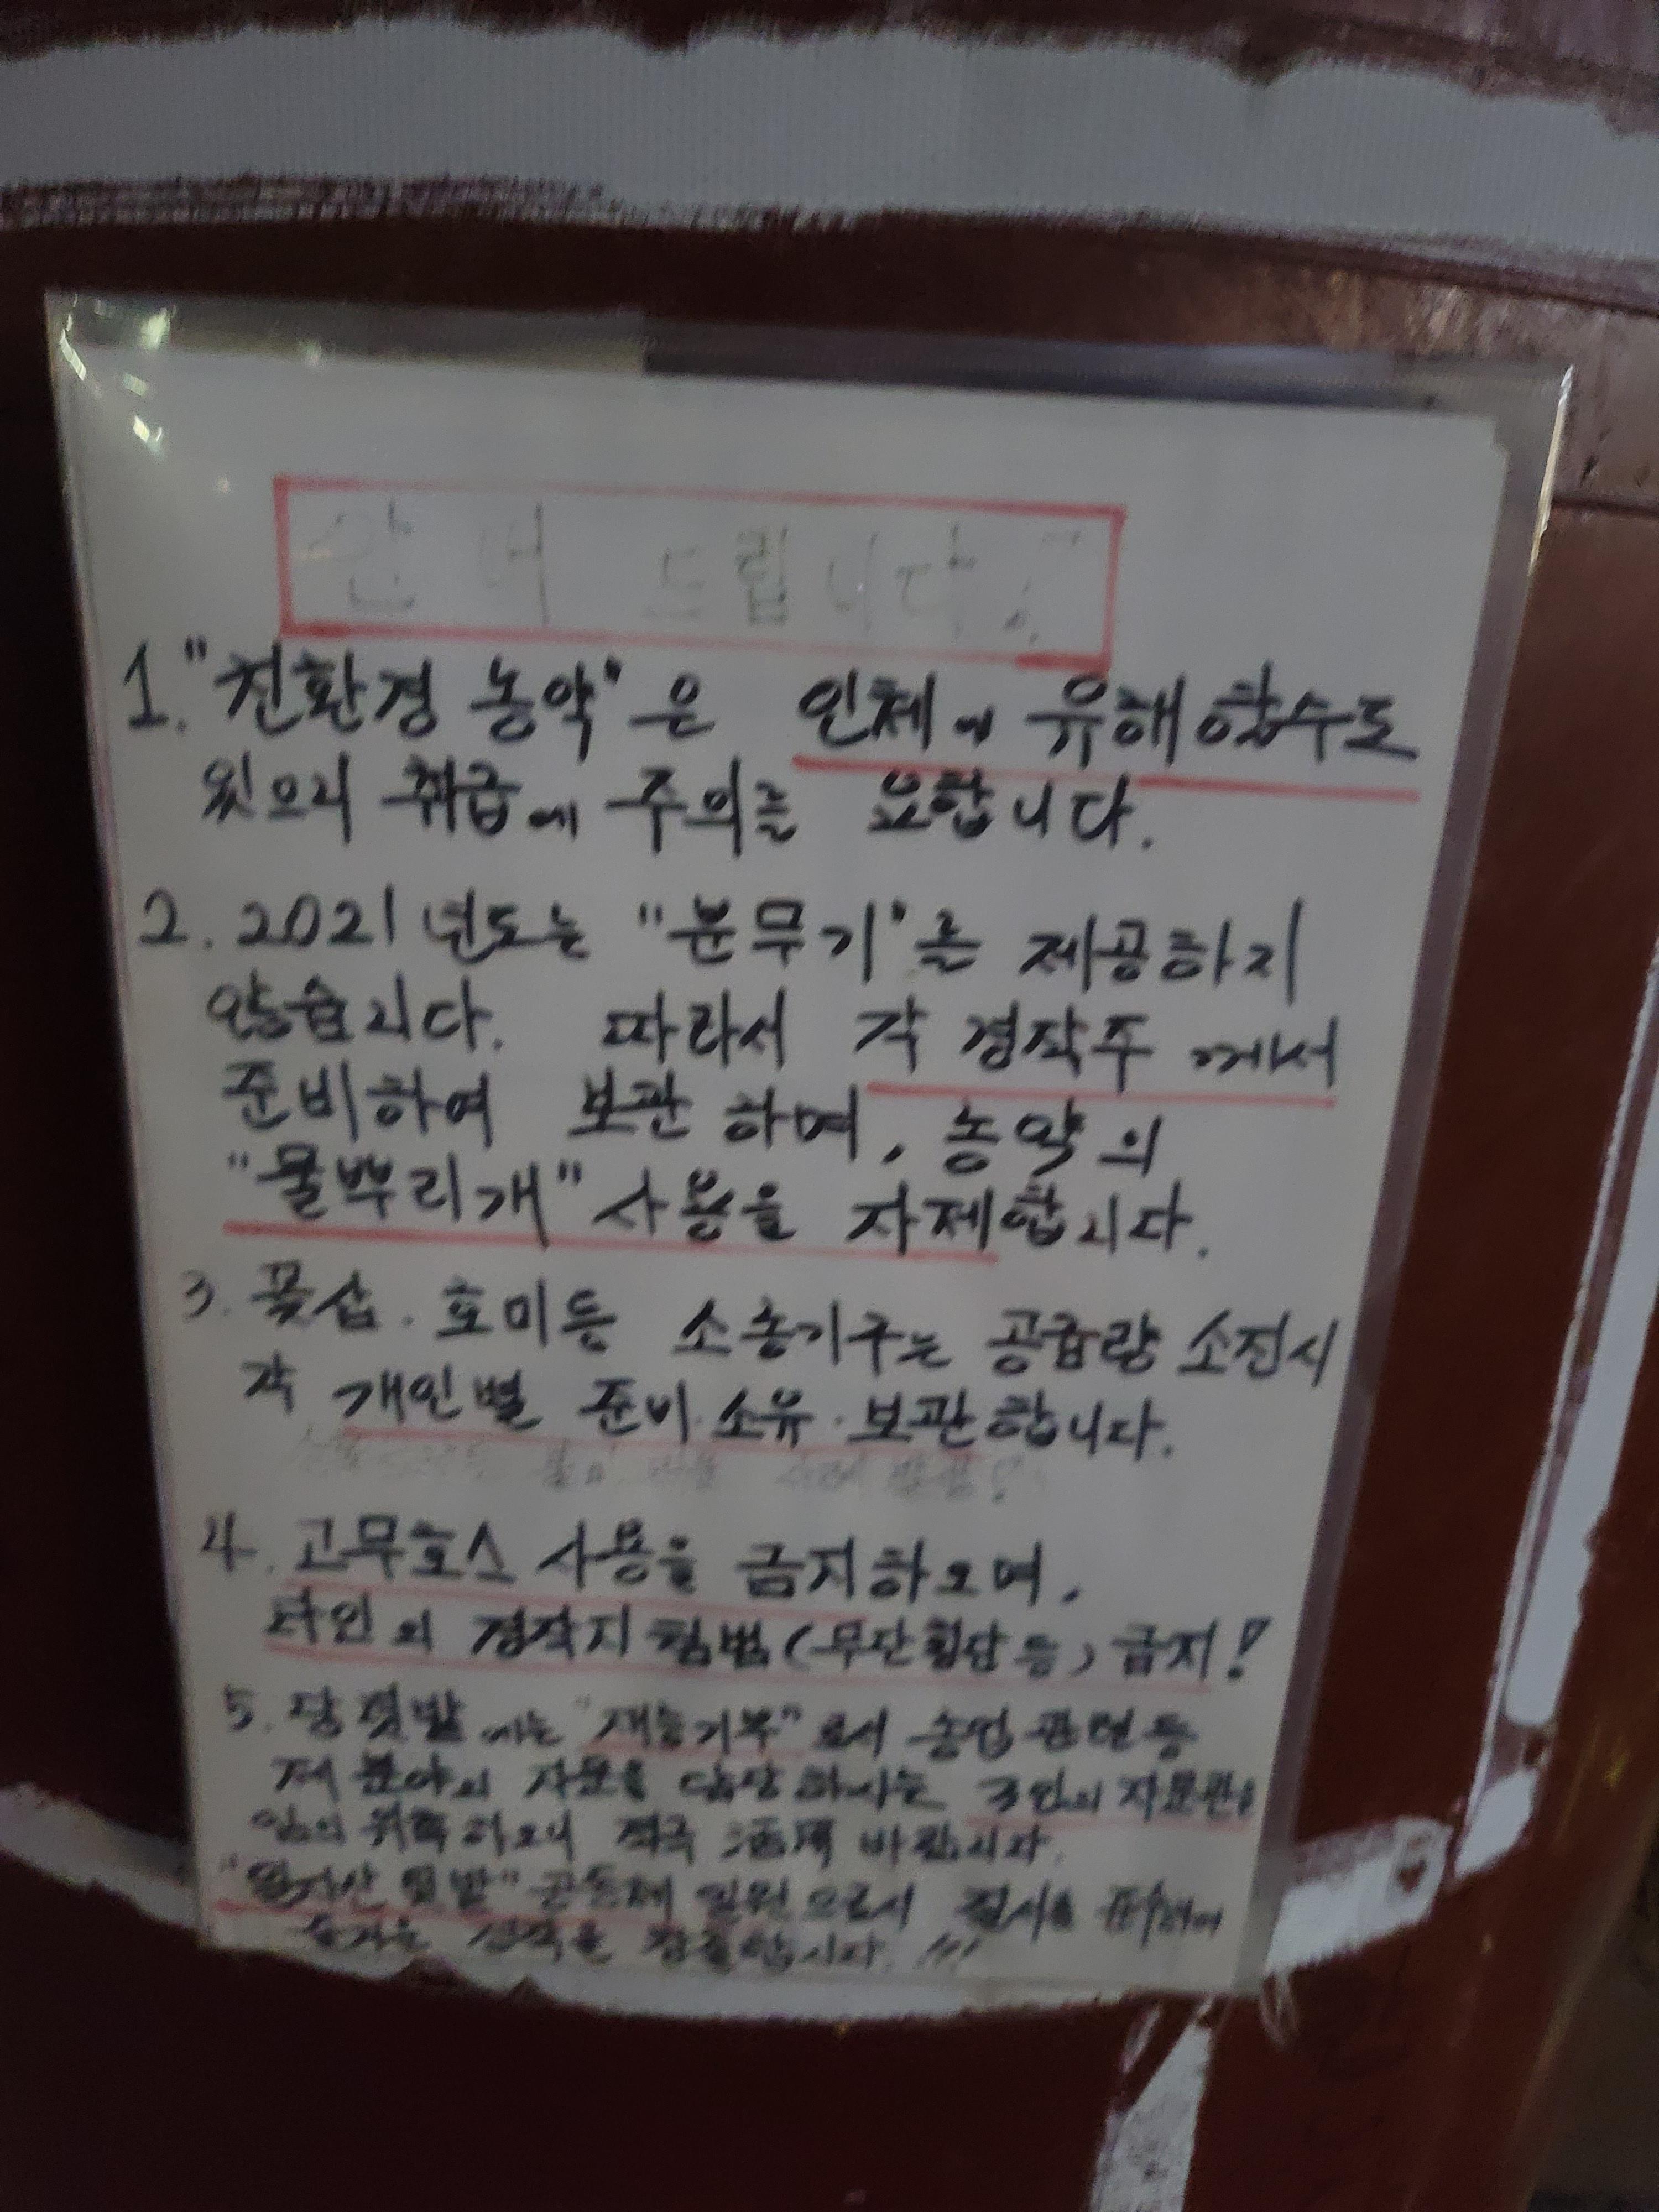 안내 드립니다!
1. "친환경 농약"은 인체에 유해할수도
있으니 취급에 주의를 요합니다.
2. 2021년도는 "분무기"를 제공하지
않습니다. 따라서 각 경작주께서
준비하여 보관하며, 농약의
"물뿌리개" 사용을 자제합니다.
3. 꽃삽·호미등 소농기구는 공급량 소진시
각 개인별 준비·소유·보관합니다.
4. 고무호스 사용을 금지하오며,
타인의 경작지 침범(무단횡단 등) 금지!
5. 당 텃밭에는 "재능기부"로서 농업 관련 등
제 분야의 자문을 담당하시는 3인의 자문관을
위촉하오니 적극 活用 바랍니다.
텃밭" 공동체 일원으로서 질서를
즐거운 경작을 !!!